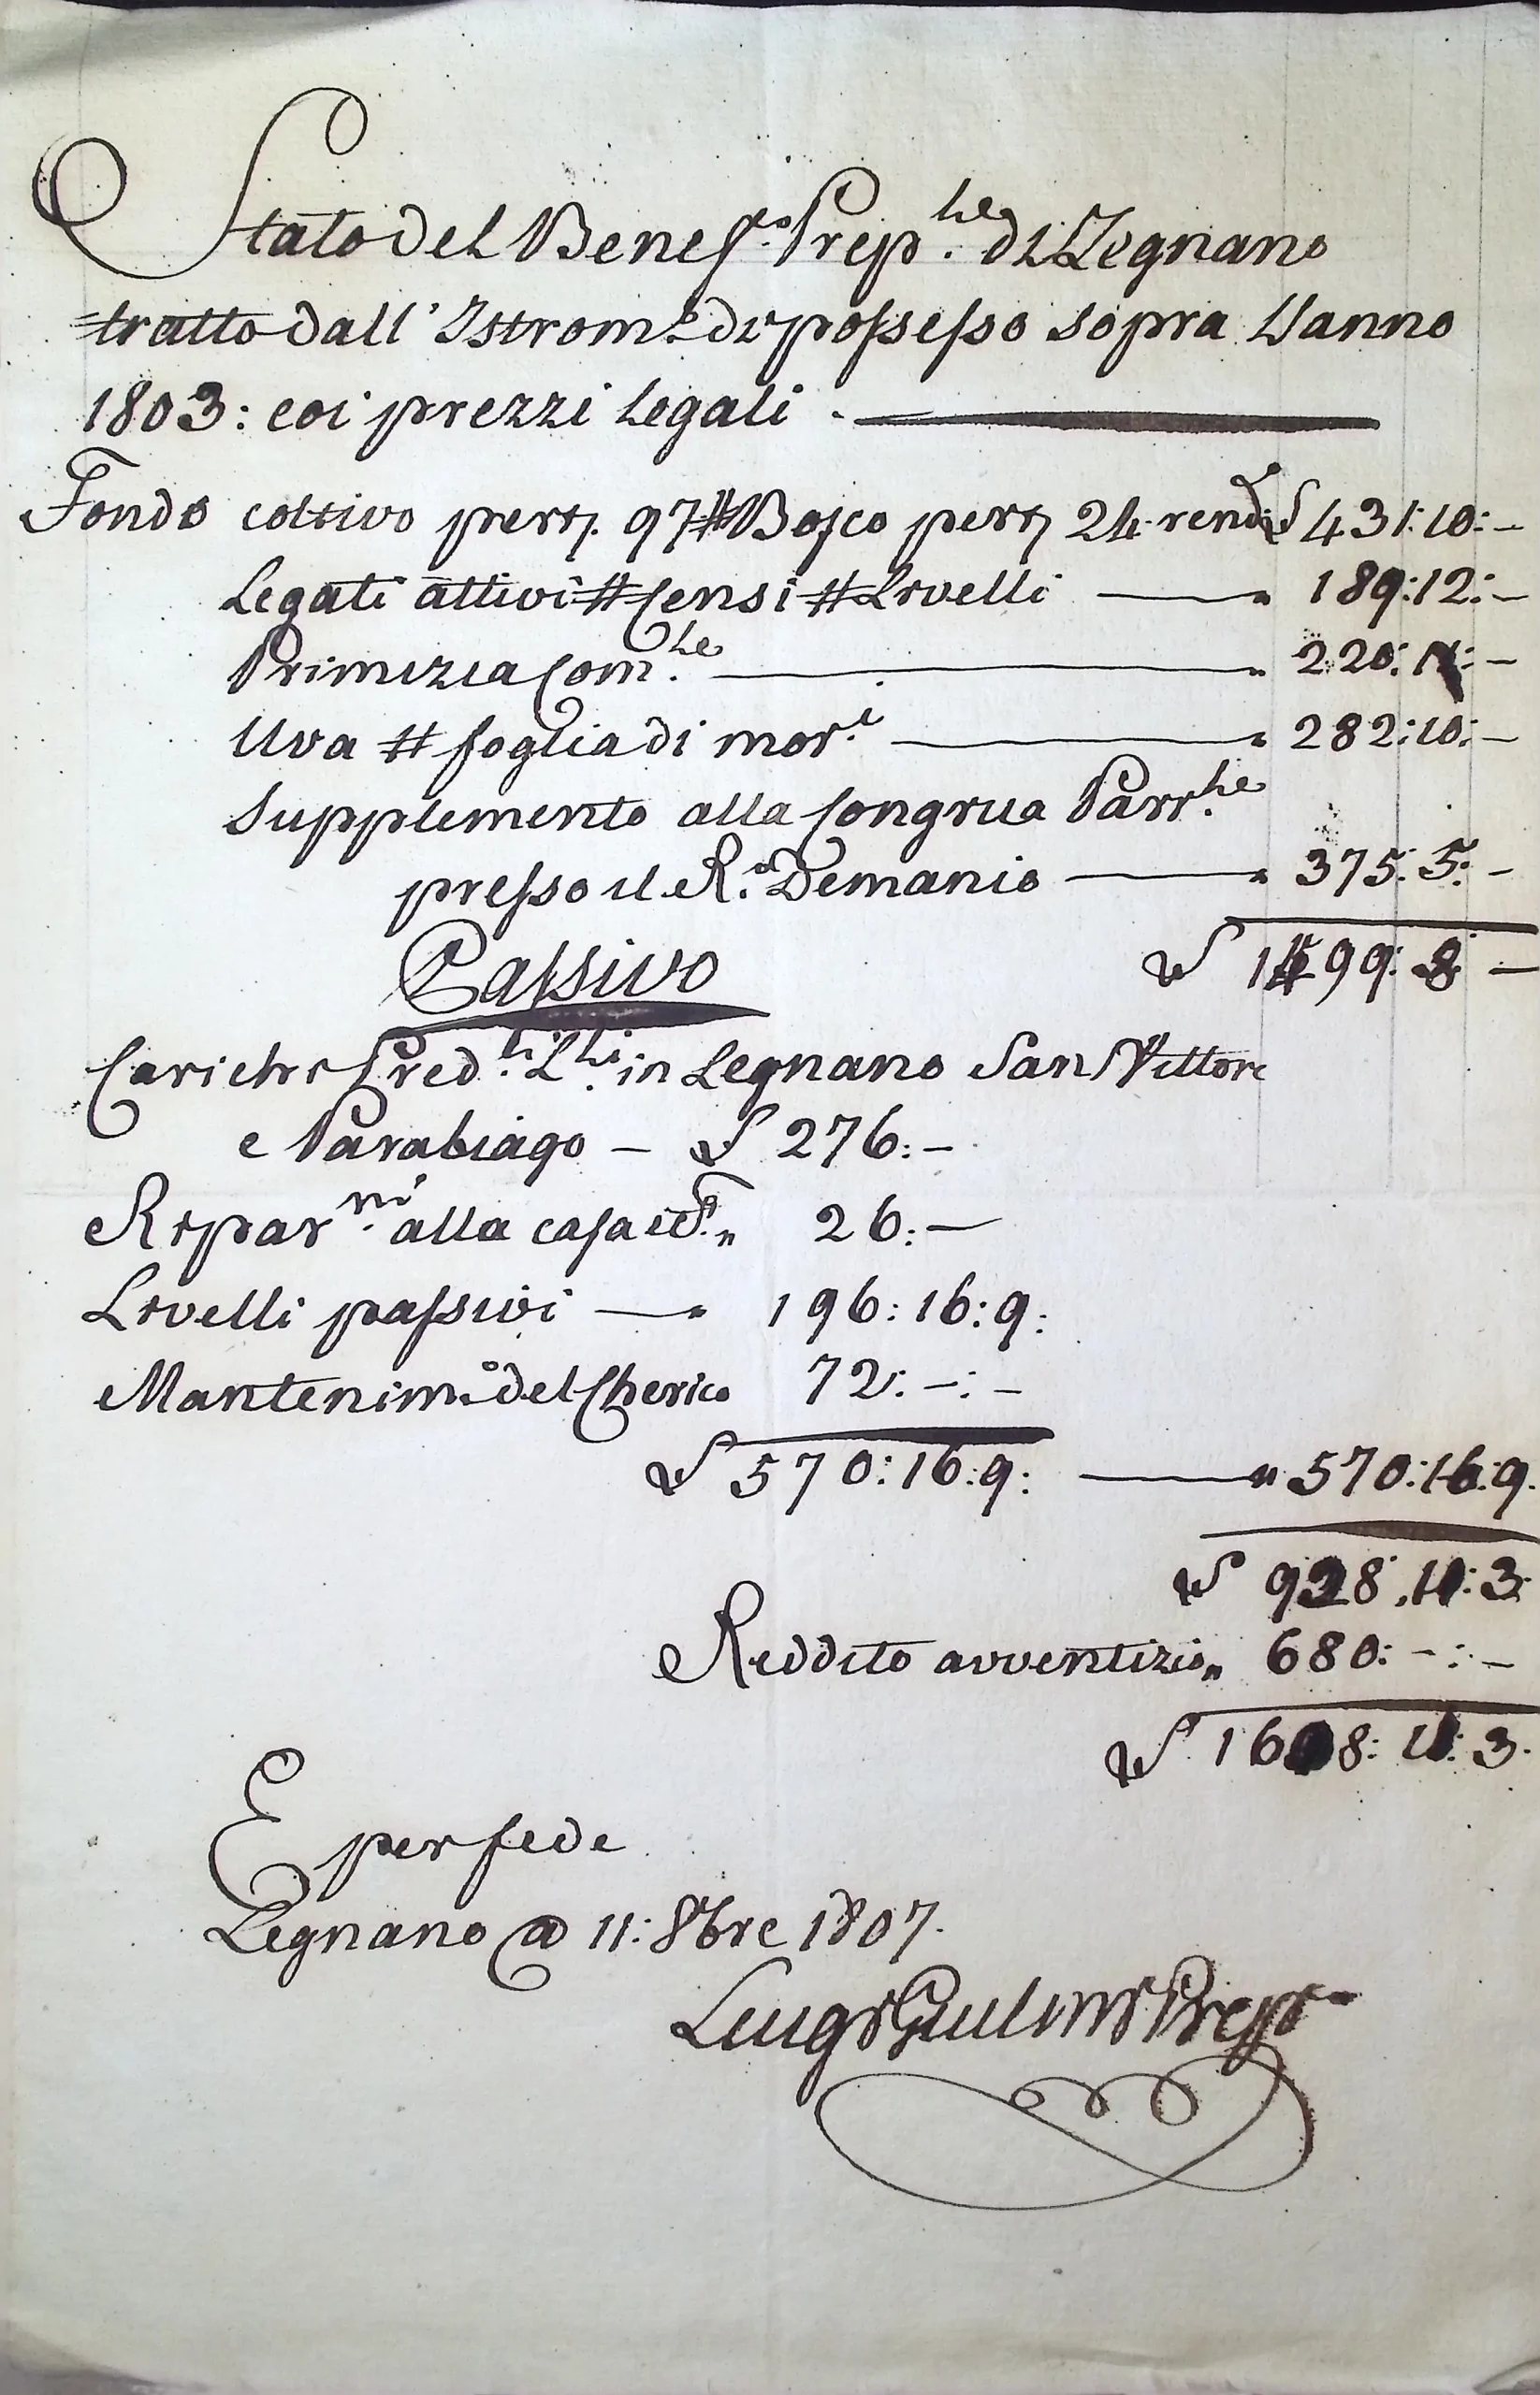 Stato del Benef.o Prep.le di Legnano
tratto dall' Istrom.o di possesso sopra L'anno
1803: coi prezzi legali.
Fondo coltivo pert. 97 # Bosco pert. 24 rend. £ 431:10:-
Legati attivi # Censi # Livelli — " 189:12:-
Primizia Com.le — " 220: :-
Uva # foglia di mor.i — " 282:10:-
Supplemento alla Congrua Parr.le
presso il R.o Demanio — " 375:5:-
Passivo £ 1499:8 -
Carichi Pred.li L.li in Legnano San Vittore
e Parabiago - £ 276:-
Ripar.ni alla casa " 26:-
Livelli passivi — " 196:16:9:
Mantenim.o del Cherico 72:-:-
£ 570:16:9: — " 570:16:9.
£ 928:11:3:
Reddito avventizio " 680:-:-
£ 1608:11:3.
E per fede
Legnano @ 11: 8bre 1807.
Luigi Giulini Prep.to